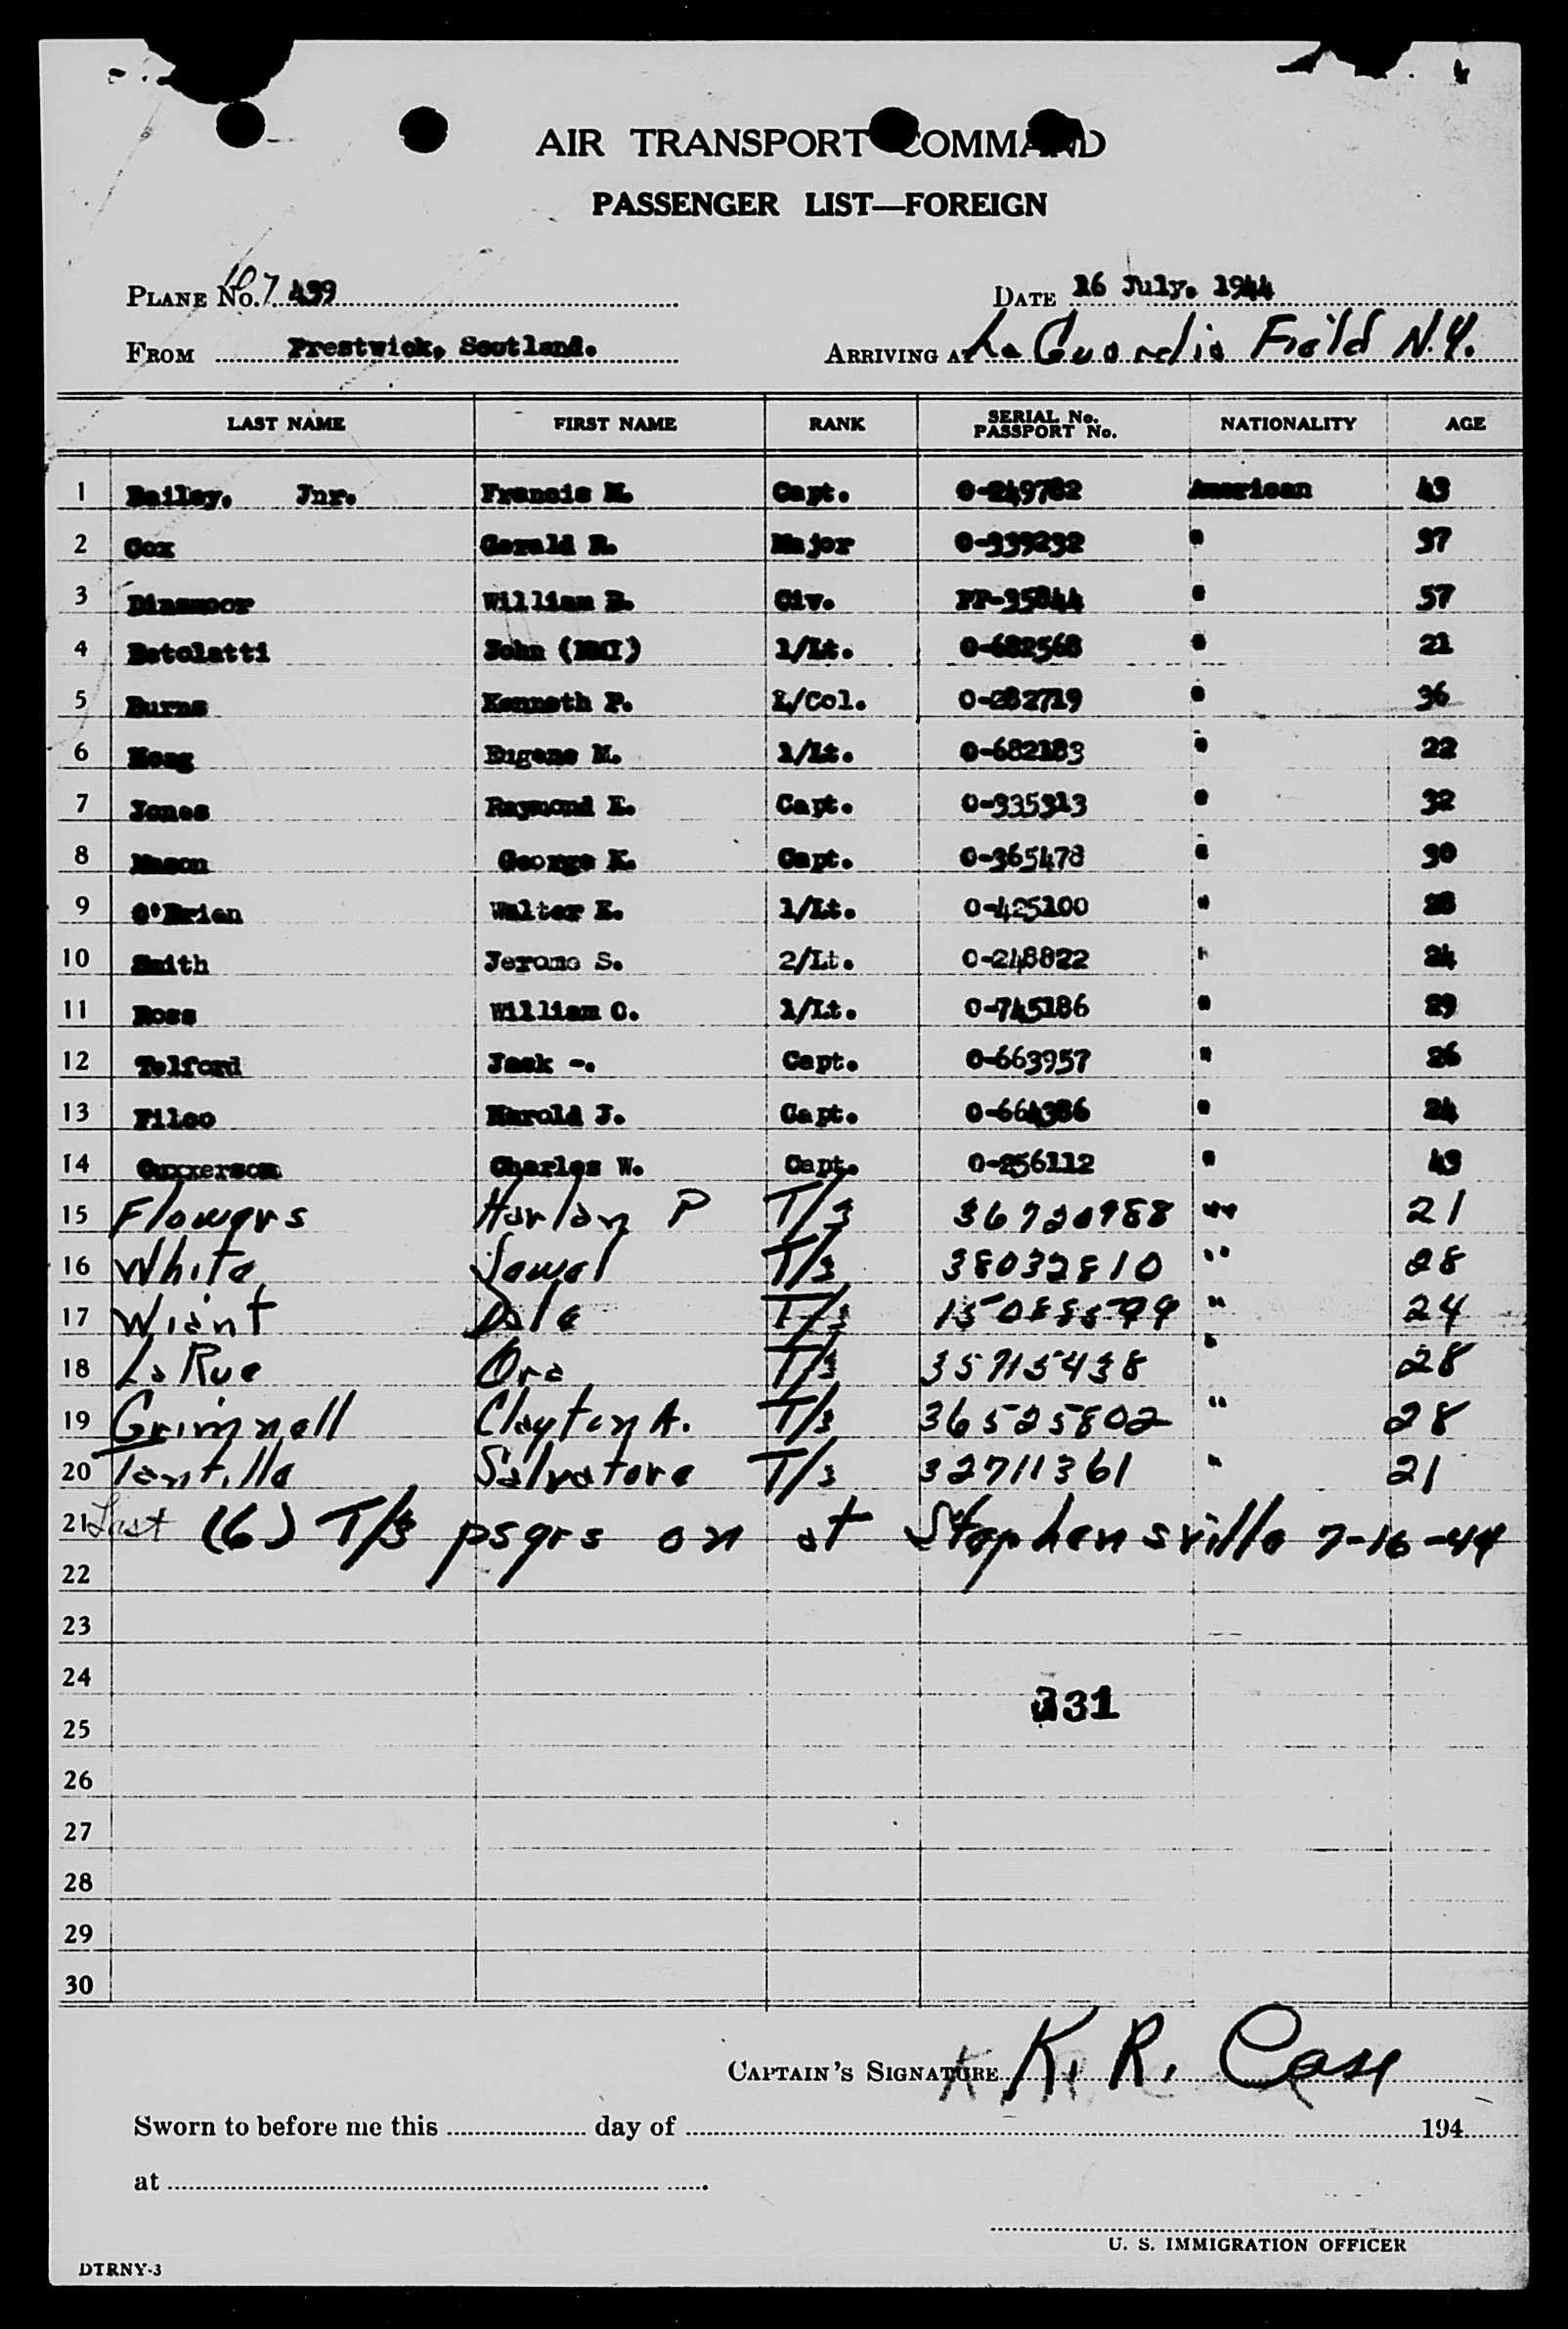 AIR TRANSPORT COMMAND
PASSENGER LIST—FOREIGN
PLANE No. 107 439
DATE 16 July. 1944
FROM Prestwick, Scotland.
ARRIVING AT La Guardia Field N.Y.
LAST NAME FIRST NAME RANK SERIAL No. PASSPORT No. NATIONALITY AGE
1 Bailey, Jnr. Francis M. Capt. 0-249782 American 43
2 Cox Gerald R. Major 0-339232 " 37
3 Dinsmoor William B. Civ. PP-35844 " 57
4 Betolatti John (NMI) 1/Lt. 0-682568 " 21
5 Burns Kenneth P. L/Col. 0-282719 " 36
6 Hoag Eugene M. 1/Lt. 0-682183 " 22
7 Jones Raymond E. Capt. 0-335313 " 32
8 Mason George K. Capt. 0-365478 " 30
9 O'Brien Walter E. 1/Lt. 0-425100 " 28
10 Smith Jerome S. 2/Lt. 0-248822 " 24
11 Ross William C. 1/Lt. 0-745186 " 29
12 Telford Jack -. Capt. 0-663957 " 26
13 Filco Harold J. Capt. 0-664386 " 24
14 Charles W. Capt. 0-256112 " 43
15 Flowers Harlan P T/3 36720988 " 21
16 White Jewel T/3 38032810 " 28
17 Wiant Dale T/3 " 24
18 La Rue Ora T/3 35715438 " 28
19 Grimnell Clayton A. T/3 36525802 " 28
20 Tantillo Salvatore T/3 32711361 " 21
21 Last (6) T/3 psgrs on at Stephensville 7-16-44
22
23
24
331
25
26
27
28
29
30
CAPTAIN'S SIGNATURE K. R. Case
Sworn to before me this day of 194
at
U. S. IMMIGRATION OFFICER
DTRNY-3